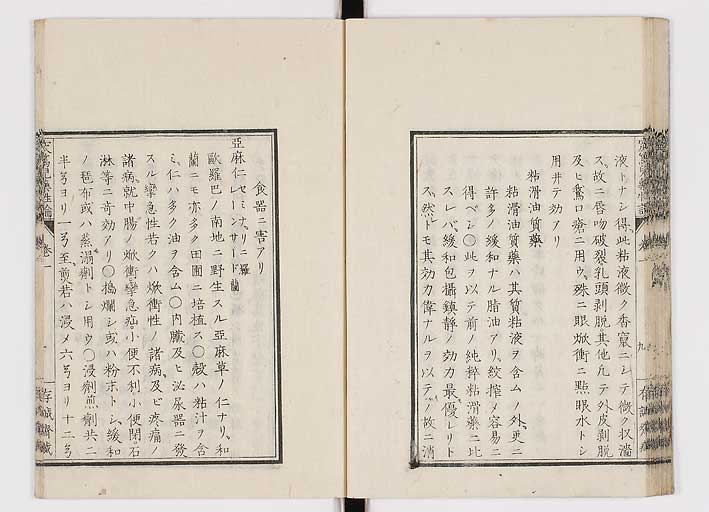 液トナシ得、此粘液微ク香竄ニシテ微ク収濇
ス、故ニ唇吻破裂乳頭剥脱其他凡テ外皮剥脱
及ヒ鵞口瘡ニ用ウ、殊ニ眼焮衝ニ點眼水トシ
用井テ効アリ
粘滑油質藥
粘滑油質藥ハ其質粘液ヲ含ムノ外、更ニ
許多ノ緩和ナル脂油アリ、絞搾メ容易ニ
得ベシ〇此ヲ以テ前ノ純粹粘滑藥ニ比
スレバ、緩和包攝鎮靜ノ効力最優レリト
ス、然トモ其効力偉ナルヲ以テノ故ニ消
食器ニ害アリ
亞麻仁 セミナ、リニ 羅 レーンサード 蘭
歐羅巴ノ南地ニ野生スル亞麻草ノ仁ナリ、和
蘭ニモ亦多ク田圃ニ培植ス〇殻ハ粘汁ヲ含
ミ、仁ハ多ク油ヲ含ム〇内臓及ヒ泌尿器ニ發
スル攣急性若クハ焮衝性ノ諸病、及ビ疼痛ノ
諸病就中腸ノ焮衝攣急疝小便不利小便閉石
淋等ニ奇効アリ〇搗爛シ或ハ粉末トシ、緩和
ノ琶布或ハ蒸溻劑トシ用ウ〇浸劑煎劑共ニ
半㕮ヨリ一㕮至、煎若ハ浸メ六㕮ヨリ十二㕮
卷一
存誠齋藏